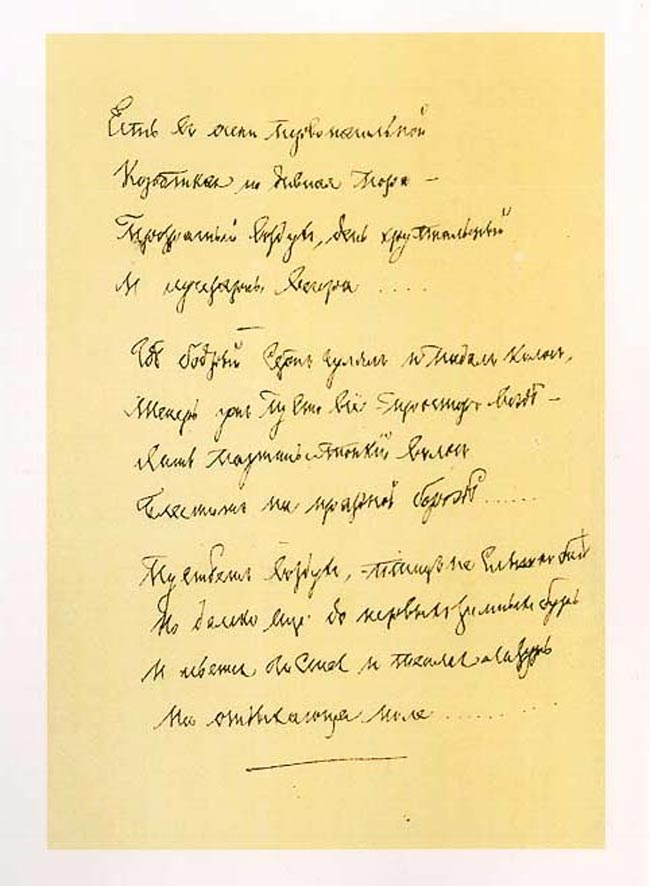 Есть въ осени первоначальной
Короткая но дивная пора —
Прозрачный воздухъ, день хрустальный
И лучезарны вечера ....
Гдѣ бодрый Серпъ гулялъ и падалъ колосъ,
Теперь ужъ пусто всё – просторъ вездѣ —
Лишь паутины тонкій волосъ
Блеститъ на праздной бороздѣ......
Пустѣетъ воздухъ, птицъ не слышно болѣ
Но далеко еще до первыхъ зимнихъ бурь
И льется чистая и теплая лазурь
На отдыхающее поле ...........